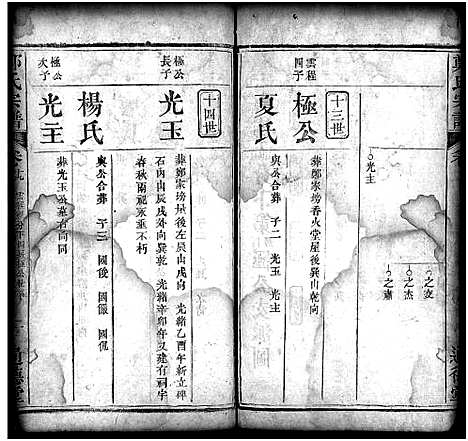 ○光主
○之麦
○之杰
○之肅
十三世
雲程四子
極公
葬鄭家塝香火堂屋後巽山乾向
夏氏
與公合葬 子二 光玉 光主
十四世
極公長子
光玉
葬鄭家塝屋後左辰山戌向 光緒乙酉年新立碑
石內山辰戌外向巽乾 光緒辛卯年又建有祠宇
春秋兩祀永垂不朽
楊氏
與公合葬 子三 國俊 國儼 國侃
極公次子
光主
葬光玉公墓右同向
氏宗譜